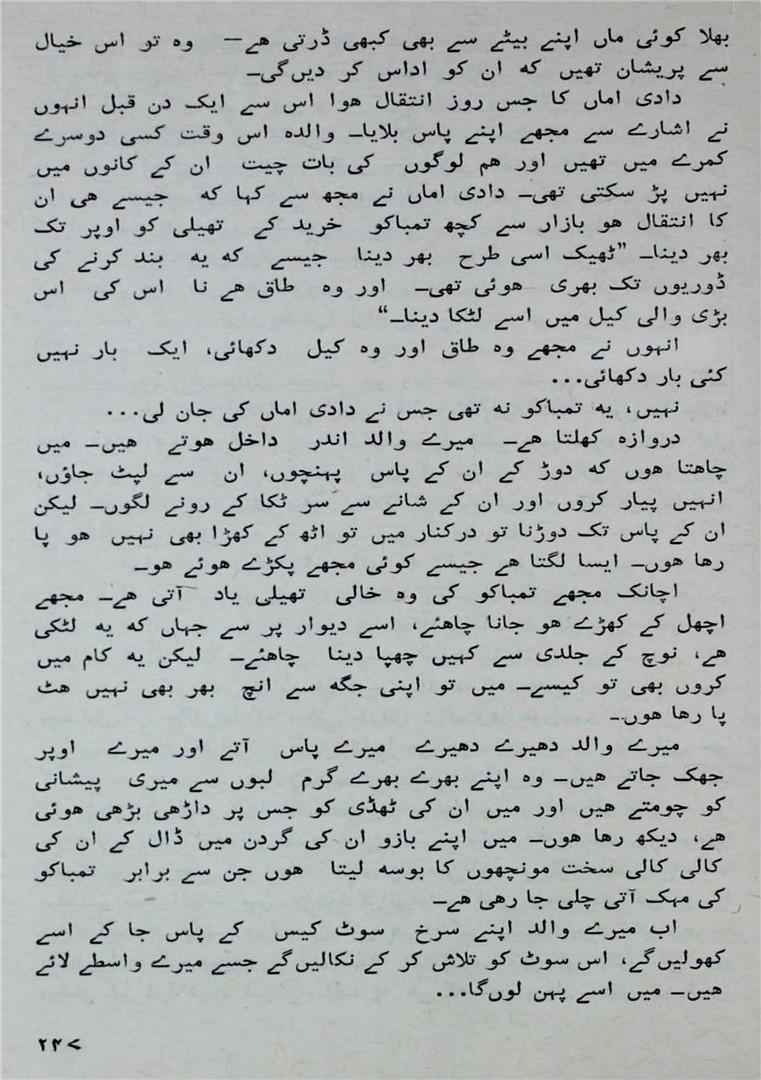 بھلا کوئی ماں اپنے بیٹے سے بھی کبھی ڈرتی ھے— وہ تو اس خیال
سے پریشان تھیں کہ ان کو اداس کر دیں گی۔
دادی اماں کا جس روز انتقال ھوا اس سے ایک دن قبل انہوں
نے اشارے سے مجھے اپنے پاس بلایا۔ والدہ اس وقت کسی دوسرے
کمرے میں تھیں اور ھم لوگوں کی بات چیت ان کے کانوں میں
نہیں پڑ سکتی تھی۔ دادی اماں نے مجھ سے کہا کہ جیسے ھی ان
کا انتقال ھو بازار سے کچھ تمباکو خرید کے تھیلی کو اوپر تک
بھر دینا۔ ”ٹھیک اسی طرح بھر دینا جیسے کہ یہ بند کرنے کی
ڈوریوں تک بھری ھوئی تھی۔ اور وہ طاق ھے نا اس کی اس
بڑی والی کیل میں اسے لٹکا دینا۔“
انہوں نے مجھے وہ طاق اور وہ کیل دکھائی، ایک بار نہیں
کئی بار دکھائی...
نہیں، یہ تمباکو نہ تھی جس نے دادی اماں کی جان لی...
دروازہ کھلتا ھے۔ میرے والد اندر داخل ھوتے ھیں۔ میں
چاھتا ھوں کہ دوڑ کے ان کے پاس پہنچوں، ان سے لپٹ جاؤں،
انہیں پیار کروں اور ان کے شانے سے سر ٹکا کے رونے لگوں۔ لیکن
ان کے پاس تک دوڑنا تو درکنار میں تو اٹھ کے کھڑا بھی نہیں ھو پا
رھا ھوں۔ ایسا لگتا ھے جیسے کوئی مجھے پکڑے ھوئے ھو۔
اچانک مجھے تمباکو کی وہ خالی تھیلی یاد آتی ھے۔ مجھے
اچھل کے کھڑے ھو جانا چاھئے، اسے دیوار پر سے جہاں کہ یہ لٹکی
ھے، نوچ کے جلدی سے کہیں چھپا دینا چاھئے۔ لیکن یہ کام میں
کروں بھی تو کیسے۔ میں تو اپنی جگہ سے انچ بھر بھی نہیں ھٹ
پا رھا ھوں۔
میرے والد دھیرے دھیرے میرے پاس آتے اور میرے اوپر
جھک جاتے ھیں۔ وہ اپنے بھرے بھرے گرم لبوں سے میری پیشانی
کو چومتے ھیں اور میں ان کی ٹھڈی کو جس پر داڑھی بڑھی ھوئی
ھے، دیکھ رھا ھوں۔ میں اپنے بازو ان کی گردن میں ڈال کے ان کی
کالی کالی سخت مونچھوں کا بوسہ لیتا ھوں جن سے برابر تمباکو
کی مہک آتی چلی جا رھی ھے۔
اب میرے والد اپنے سرخ سوٹ کیس کے پاس جا کے اسے
کھولیں گے، اس سوٹ کو تلاش کر کے نکالیں گے جسے میرے واسطے لائے
ھیں۔ میں اسے پہن لوں گا...
۲۴۷